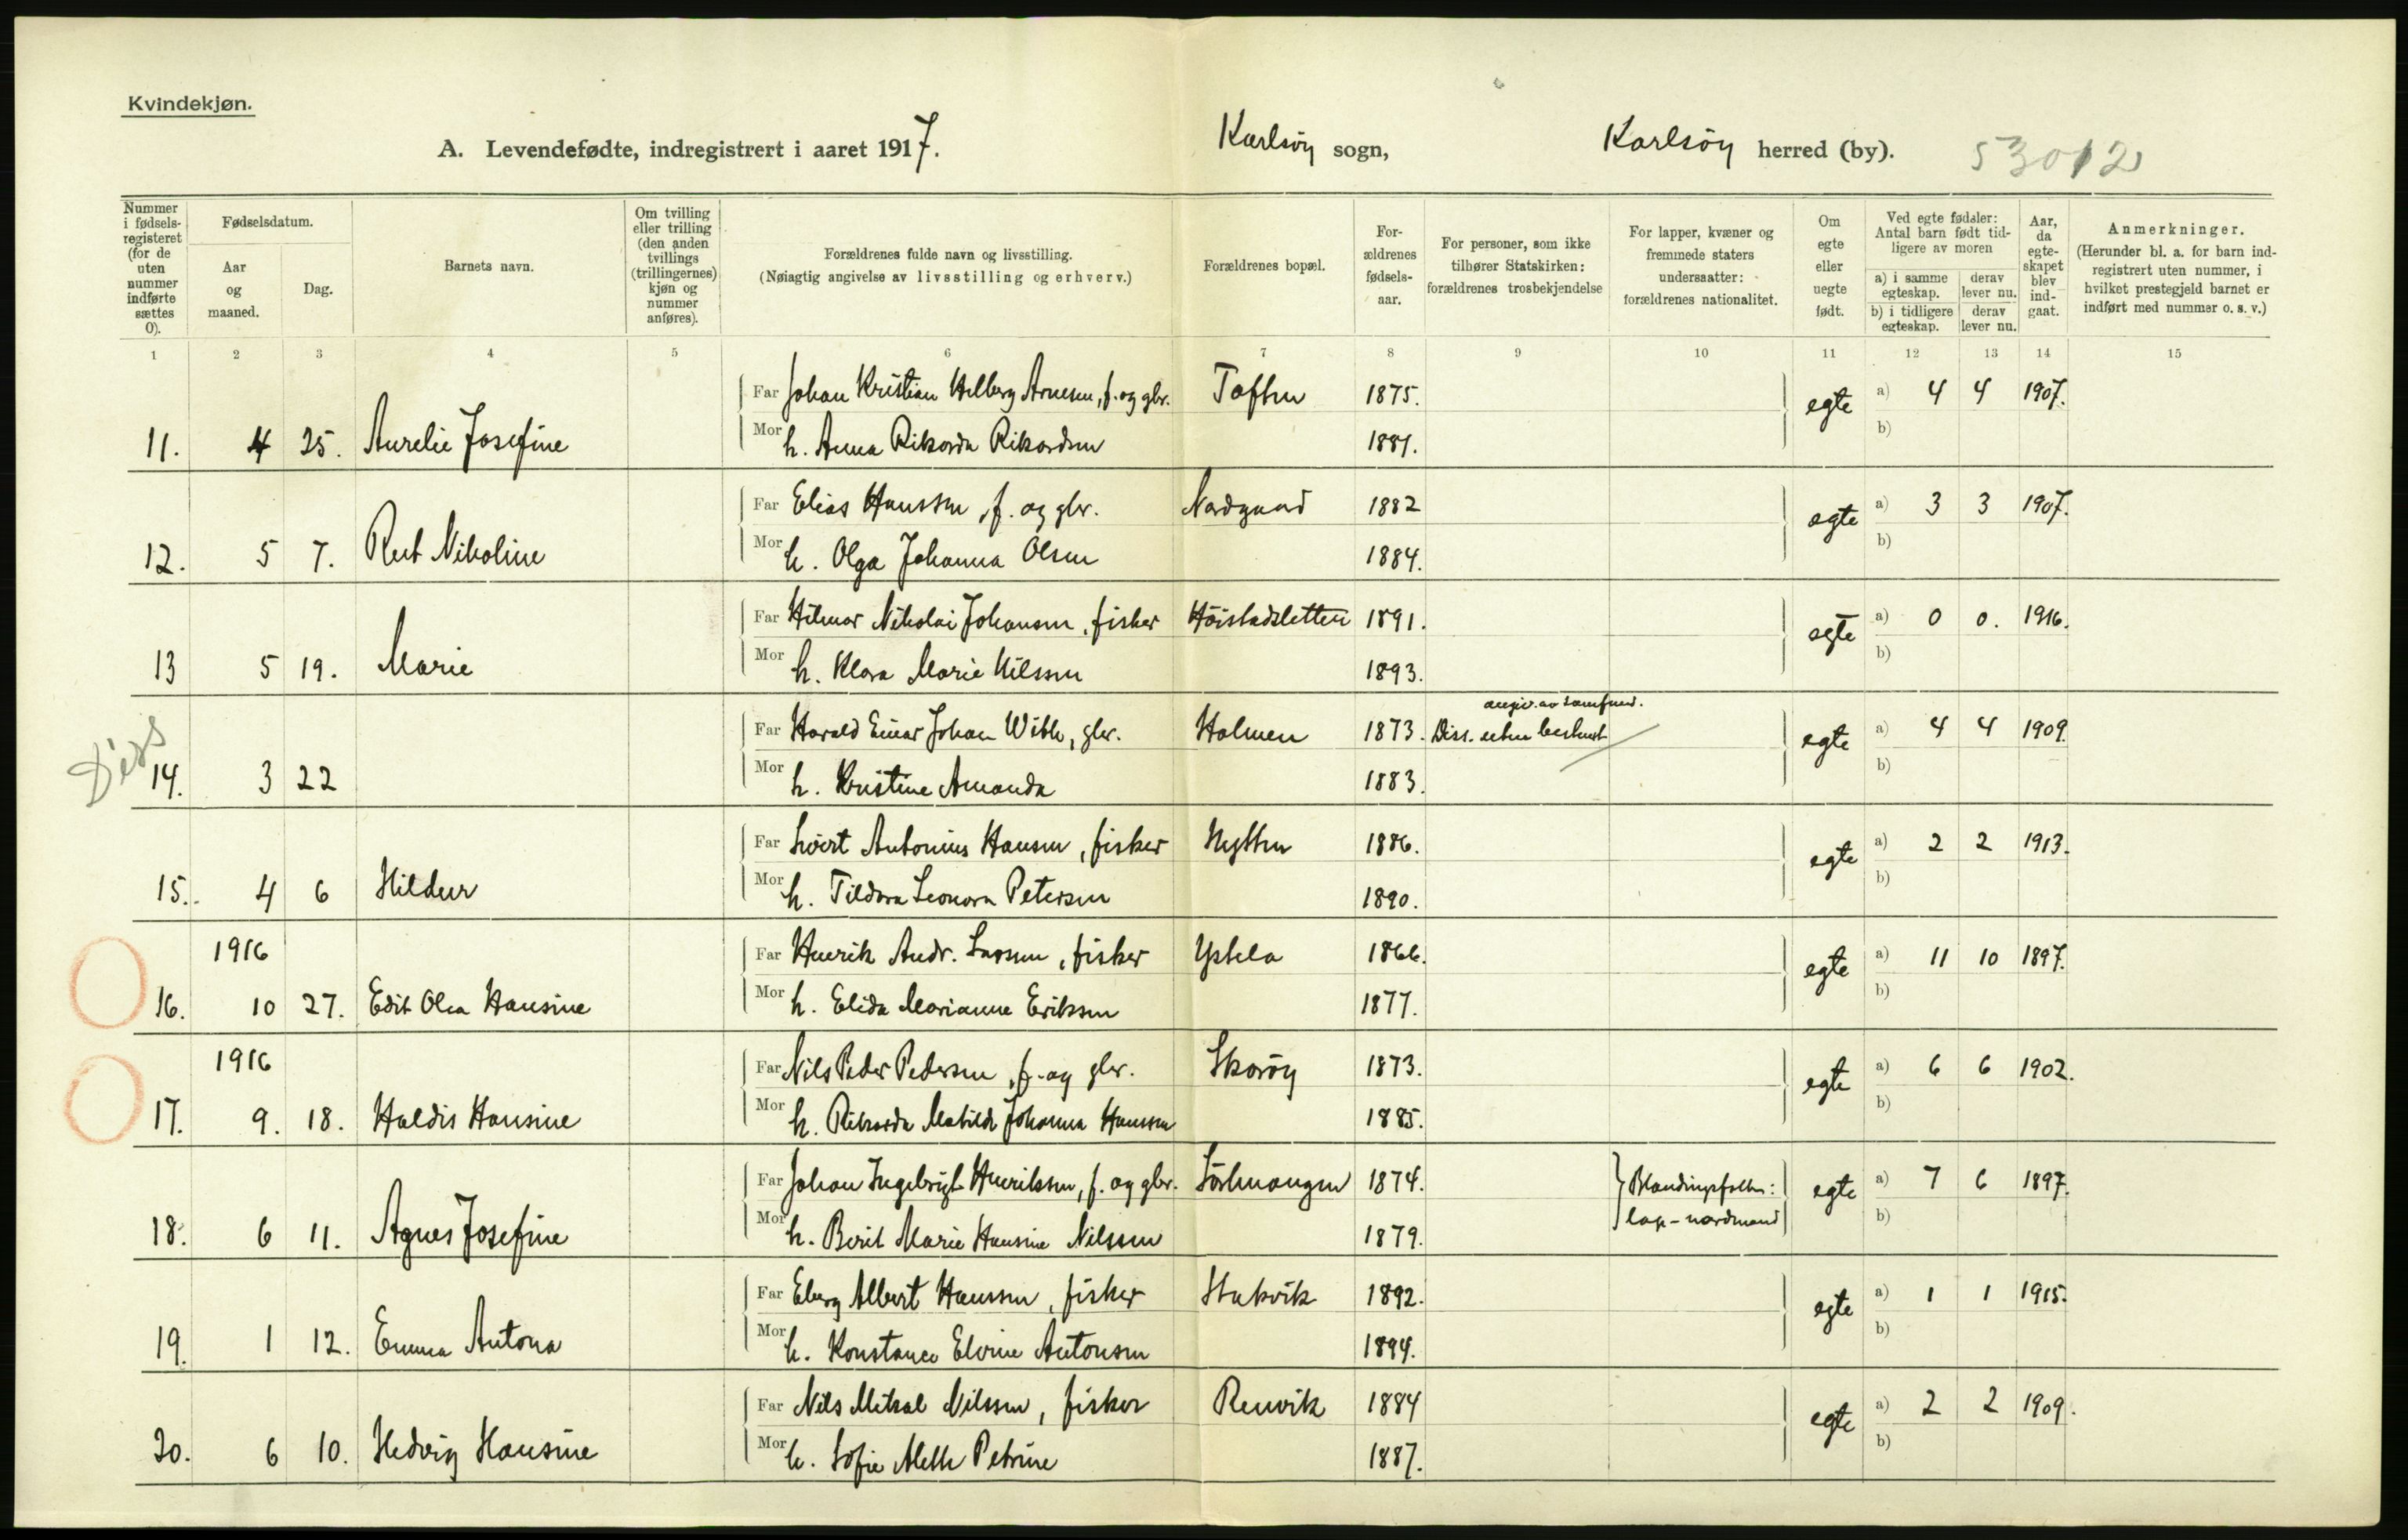 Kvindekjøn.
A. Levendefødte, indregistrert i aaret 1917.
Karlsöy sogn,
Karlsöy herred (by).
53012
Nummer i fødselsregisteret (for de uten nummer indførte sættes 0).
Fødselsdatum.
Aar og maaned.
Dag.
Barnets navn.
Om tvilling eller trilling (den anden tvillings (trillingernes) kjøn og nummer anføres).
Forældrenes fulde navn og livsstilling.
(Nøiagtig angivelse av livsstilling og erhverv.)
Forældrenes bopæl.
Forældrenes fødselsaar.
For personer, som ikke tilhører Statskirken: forældrenes trosbekjendelse
For lapper, kvæner og fremmede staters undersaatter: forældrenes nationalitet.
Om egte eller uegte født.
Ved egte fødsler: Antal barn født tidligere av moren
a) i samme egteskap.
derav lever nu.
b) i tidligere egteskap.
derav lever nu.
Aar, da egteskapet blev indgaat.
Anmerkninger.
(Herunder bl. a. for barn indregistrert uten nummer, i hvilket prestegjeld barnet er indført med nummer o. s. v.)
1 2 3 4 5 6 7 8 9 10 11 12 13 14 15
Far Johan Kristian Hilberg Arnesen, f. og gbr. Toften 1875. egte a) 4 4 1907.
11. 4 25. Aurelie Josefine Mor h. Anna Rikorda Rikardsen 1881. b)
Far Elias Hanssen, f. og gbr. Nordgaard 1882 egte a) 3 3 1907.
12. 5 7. Rut Nikoline Mor h. Olga Johanna Olsen 1884. b)
Far Hilmar Nikolai Johansen, fisker Höistadsletten 1891. egte a) 0 0. 1916.
13 5 19. Marie Mor h. Klara Marie Nilssen 1893. b)
Far Harald Einar Johan gbr. Holmen 1873. Diss. uten bestemt angiv. av samfund. egte a) 4 4 1909.
Diss
14. 3 22 Mor h. Kristine Amanda 1883. b)
Far Antonius Hansen, fisker Nytten 1886. egte a) 2 2 1913.
15. 4 6 Hildur Mor h. Tildora Leonora Petersen 1890. b)
1916 Far Henrik Andr. Larsen, fisker 1866. egte a) 11 10 1897.
16. 10 27. Edit Olea Hansine Mor h. Elida Marianne Eriksen 1877. b)
1916 Far Nils Peder Pedersen, f. og gbr. Skoröy 1873. egte a) 6 6 1902.
17. 9. 18. Haldis Hansine Mor h. Rikarda Matilde Johanna Hanssen 1885. b)
Far Johan Ingebrigt Henriksen, f. og gbr. 1874. Blandingsfolk: egte a) 7 6 1897.
18. 6 11. Agnes Josefine Mor h. Berit Marie Hansine Nilssen 1879. lap-nordmand b)
Far Eberg Albert Hanssen, fisker Stakvik 1892. egte a) 1 1 1915.
19. 1 12. Emma Antona Mor h. Konstance Elvine Antonsen 1894. b)
Far Nils Mikal Nilssen, fisker Renvik 1884 egte a) 2 2 1909.
20. 6 10. Hedvig Hansine Mor h. Sofie Mette Petrine 1887. b)